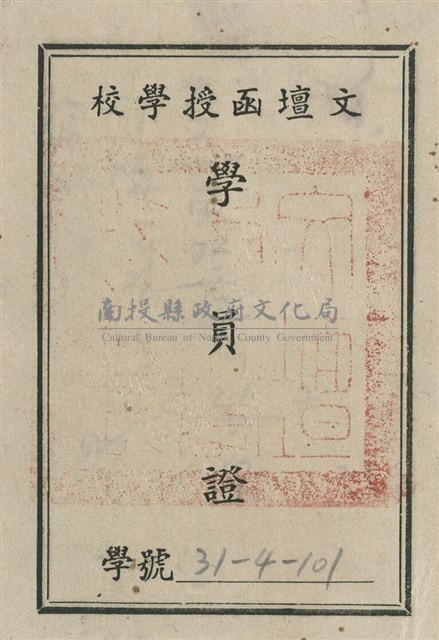 文壇函授學校
學員證
南投縣政府文化局
Cultural Bureau of Nantou County Government
學號 31-4-101